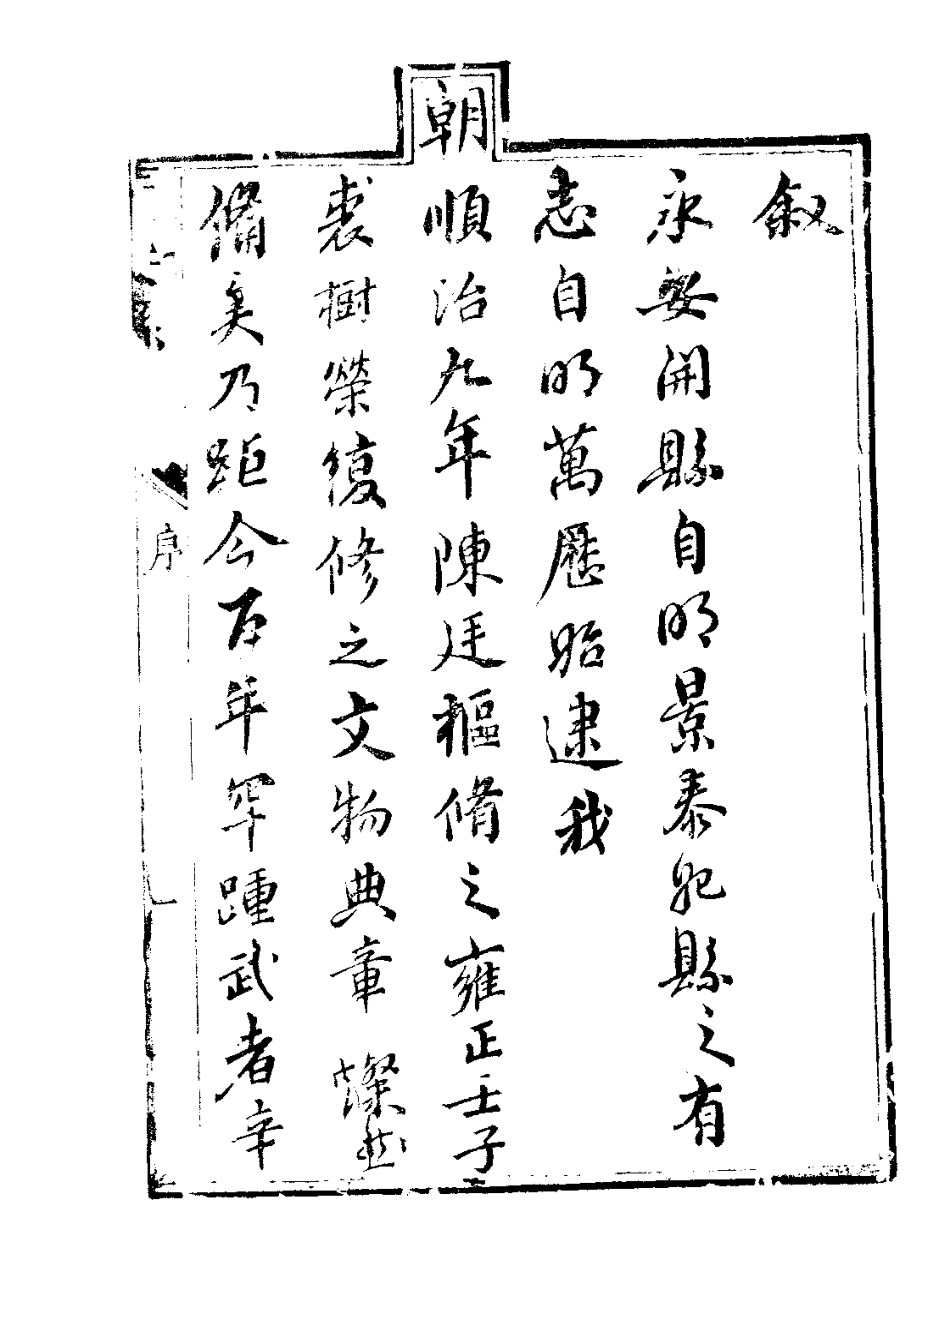 叙
永安開縣自明景泰始縣之有
志自明萬曆昉逮我
朝順治九年陳廷樞脩之雍正壬子
裘樹榮復修之文物典章燦然
備矣乃距今百年罕踵武者辛
序